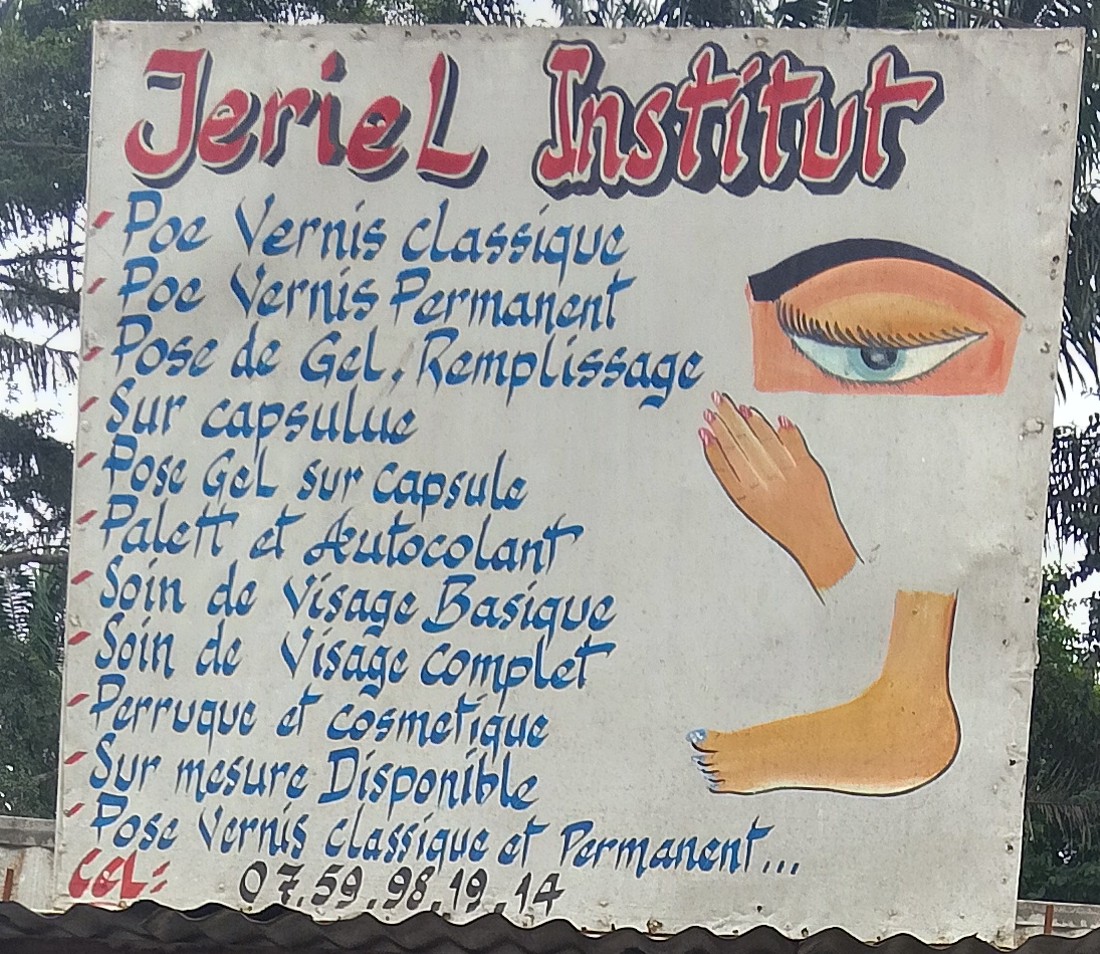 JerieL Institut
Poe Vernis classique
Poe Vernis Permanent
Pose de Gel, Remplissage
Sur capsulue
Pose Gel sur capsule
Palett et Autocolant
Soin de Visage Basique
Soin de Visage complet
Perruque et cosmetique
Sur mesure Disponible
Pose Vernis classique et Permanent...
CeL: 07.59.98.19.14